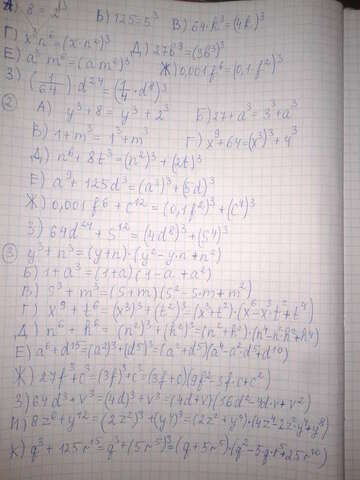 А) 8 = 2³ Б) 125=5³ В) 64k³=(4k)³
Г) x³n⁶=(x·n²)³ Д) 27b⁹=(3b³)³
Е) a³m⁶=(am²)³ Ж) 0,001f⁶=(0,1f²)³
З) (1/64)·d²⁴=(1/4·d⁸)³
② А) y³+8=y³+2³ Б) 27+a³=3³+a³
В) 1+m³=1³+m³ Г) x⁹+64=(x³)³+4³
Д) n⁶+8t³=(n²)³+(2t)³
Е) a⁹+125d³=(a³)³+(5d)³
Ж) 0,001f⁶+c¹²=(0,1f²)³+(c⁴)³
З) 64d²⁴+5¹²=(4d⁸)³+(5⁴)³
③ y³+n³=(y+n)·(y²-y·n+n²)
Б) 1+a³=(1+a)(1-a+a²)
В) 5³+m³=(5+m)(5²-5·m+m²)
Г) x⁹+t⁶=(x³)³+(t²)³=(x³+t²)·(x⁶-x³·t²+t⁴)
Д) n⁶+h⁶=(n²)³+(h²)³=(n²+h²)·(n⁴-n²h²+h⁴)
Е) a⁶+d¹⁵=(a²)³+(d⁵)³=(a²+d⁵)(a⁴-a²d⁵+d¹⁰)
Ж) 27f³+c³=(3f)³+c³=(3f+c)(9f²-3f·c+c²)
З) 64d³+v³=(4d)³+v³=(4d+v)(16d²-4d·v+v²)
И) 8z⁶+y¹²=(2z²)³+(y⁴)³=(2z²+y⁴)·(4z⁴-2z²y⁴+y⁸)
К) q³+125r¹⁵=q³+(5r⁵)³=(q+5r⁵)·(q²-5q·r⁵+25r¹⁰)